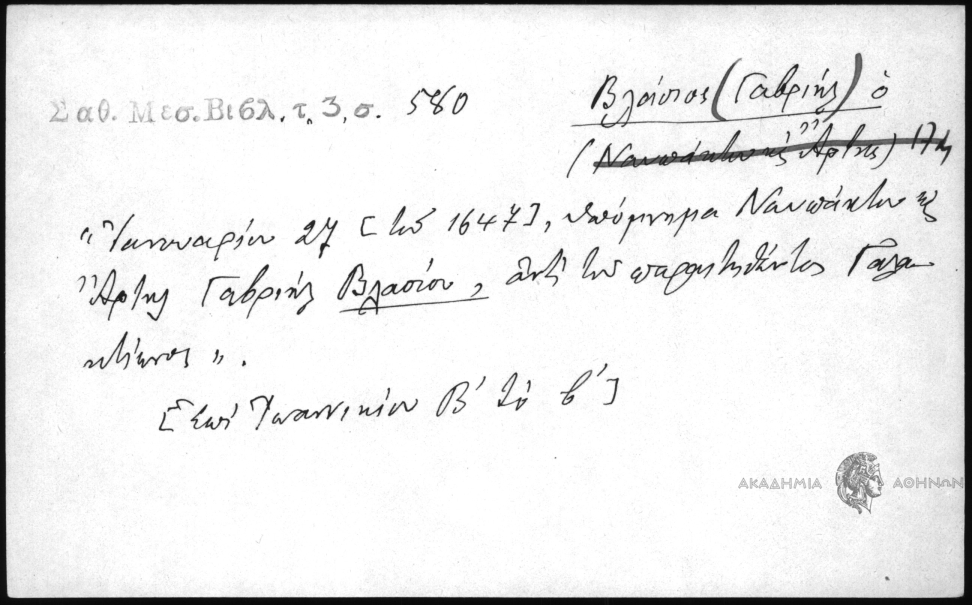 Σαθ. Μεσ. Βιβλ. τ. 3, σ. 580
Βλάσιος (Γαβριήλ) ὁ
(Ναυπάκτου κ̀ Ἄρτης)
"Ἰανουαρίου 27 [τοῦ 1647], ὑπόμνημα Ναυπάκτου κ̀
Ἄρτης Γαβριήλ Βλασίου, ἀντὶ τοῦ παραιτηθέντος Γαλα-
κτίωνος".
[Ἐπὶ Ἰωαννικίου Β' τὸ β']
ΑΚΑΔΗΜΙΑ ΑΘΗΝΩΝ